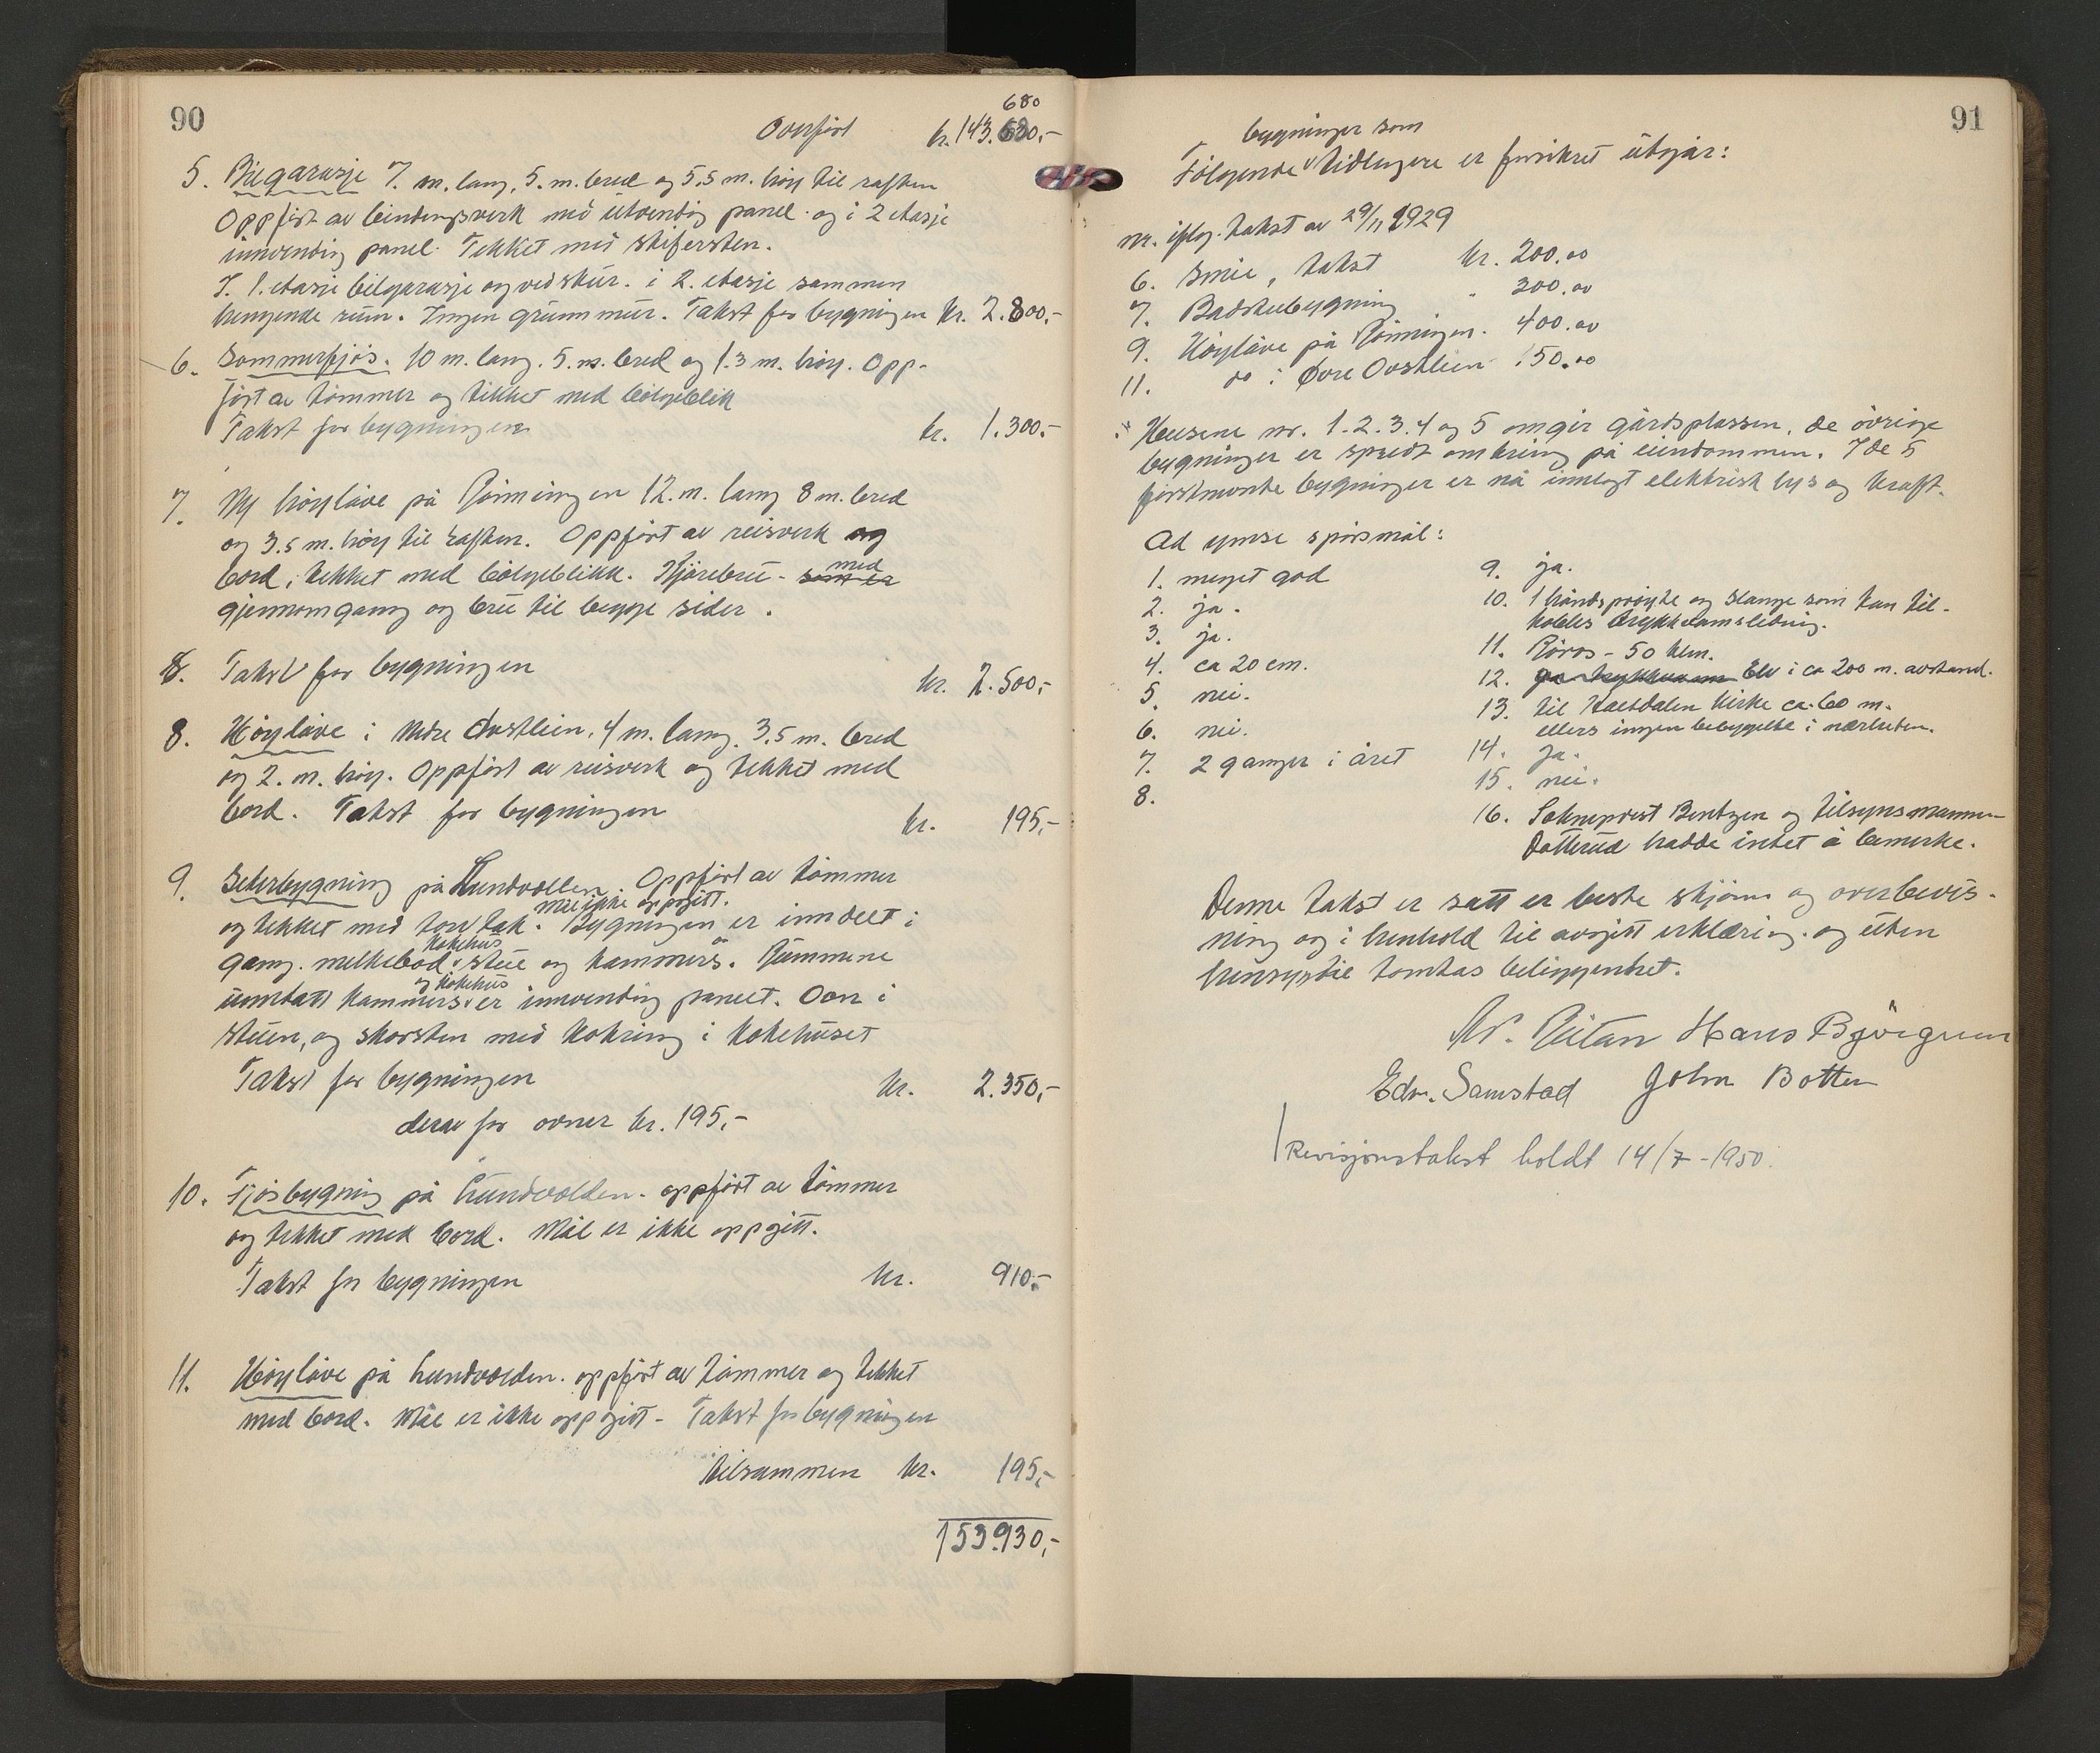 90
680
Overført kr. 143.680,-
5. Bilgarasje 7. m. lang, 5. m. bred og 5,5 m. høy til raften
Oppført av bindingsverk med utvendig panel og i 2 etasje
innvendig panel. Tekket med skifersten.
I. 1. etasje bilgarasje og vedskur. i 2. etasje sammen
hengende rum. Ingen grunnmur. Takst for bygningen kr. 2.800,-
6. Sommerfjøs. 10 m. lang. 5. m. bred og 1.3 m. høy. Opp-
ført av tømmer og tekket med bølgeblik
Takst for bygningen kr. 1.300,-
7. Ny høyløve på Rønningen 12. m. lang 8 m. bred
og 3.5 m. høy til raften. Oppført av reisverk og
bord, tekket med bølgeblikk. Kjørebru - som er med
gjennomgang og bru til begge sider.
8. Takst for bygningen kr. 2.500,-
8. Høyløve i nedre Ovstlien, 4 m. lang. 3,5 m. bred
og 2. m. høy. Oppført av reisverk og tekket med
bord. Takst for bygningen kr. 195,-
9. Seterbygning på Lundvollen. Oppført av tømmer
mål ikke oppgitt.
og tekket med torvtak. Bygningen er inndelt i
kokehus
gang. melkebod, stue og kammers. Rummene
og kokehus
unntatt kammers er innvendig panelt. Ovn i
stuen, og skorsten med kokring i kokehuset
Takst for bygningen kr. 2.350,-
derav for ovner kr. 195,-
10. Fjøsbygning på Lundvolden. oppført av tømmer
og tekket med bord. Mål er ikke oppgitt.
Takst for bygningen kr. 910,-
11. Høyløve på Lundvolden. oppført av tømmer og tekket
med bord. Mål er ikke oppgitt - Takst for bygningen
tilsammen kr. 195,-
153.930,-
91
bygninger som
Følgende tidligere er forsikret utgår:
nr. ifølg. takst av 29/11 1929
6. Smie, takst kr. 200.00
7. Badstubygning " 300.00
9. Høyløve på Rønningen. 400.00
11. do i Øvre Ovstlien 150.00
Husene nr. 1.2.3.4 og 5 omgir gårdsplassen, de øvrige
bygninger er spredt omkring på eiendommen. I de 5
førstnevnte bygninger er nå innlagt elektrisk lys og kraft.
Ad ymse spørsmål:
1. meget god
2. ja.
3. ja.
4. ca 20 cm.
5. nei.
6. nei.
7. 2 ganger i året
8.
9. ja.
10. 1 håndsprøyte og slange som kan til-
kobles trykkvannsledning.
11. Røros - 50 klm.
12. Elv i ca 200 m. avstand.
13. til Haltdalen kirke ca. 60 m.
ellers ingen bebyggelse i nærheten.
14. ja.
15. nei.
16. Sokneprest Bentzen og tilsynsmannen
Dotterud hadde intet å bemerke.
Denne takst er satt er beste skjønn og overbevis-
ning og i henhold til avgitt erklæring og uten
hensyn til tomtas beliggenhet.
N. Reitan Hans Bjørgum
Edv. Samstad John Botten
Revisjonstakst holdt 14/7-1950.